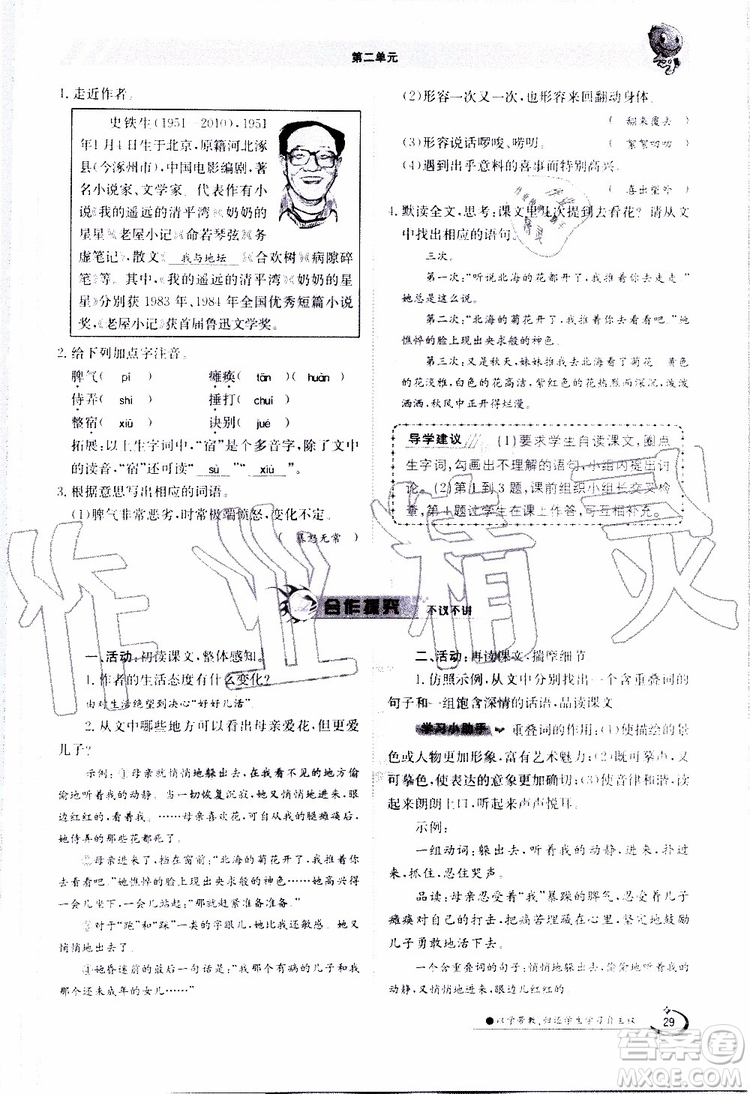 第二单元
1. 走近作者。
史铁生(1951—2010),1951
年1月4日生于北京,原籍河北涿
县(今涿州市),中国电影编剧,著
名小说家、文学家。代表作有小
说《我的遥远的清平湾》《奶奶的
星星》《老屋小记》《命若琴弦》《务
虚笔记》,散文《我与地坛》《合欢树》《病隙碎
笔》等。其中,《我的遥远的清平湾》《奶奶的星
星》分别获得1983年、1984年全国优秀短篇小说
奖,《老屋小记》获首届鲁迅文学奖。
2. 给下列加点字注音。
脾气( pí ) 瘫痪( tān )( huàn )
侍弄( shì ) 捶打( chuí )
整宿( xiǔ ) 诀别( jué )
拓展:以上生字词中,“宿”是多音字,除了文中
的读音,“宿”还可读“ sù ”“ xiù ”。
3. 根据意思写出相应的词语。
(1)脾气非常恶劣,时常极端愤怒,变化不定。
( 暴怒无常 )
(2)形容一次又一次,也指来回翻动身体。
( 翻来覆去 )
(3)形容说话啰唆、唠叨。 ( 絮絮叨叨 )
(4)遇到出乎意料的喜事而特别高兴。
( 喜出望外 )
4. 默读全文,思考:课文里几次提到去看花?请从
文中找出相应的语句。
三次。
第一次:“听说北海的花都开了,我推着你去走走。”
她总是这么说。
第二次:“北海的菊花开了,我推着你去看看吧。”她
憔悴的脸上现出央求般的神色。
第三次:又是秋天,妹妹推着我去北海看了菊花。黄色
的花淡雅,白色的花高洁,紫红色的花热烈而深沉,泼泼
洒洒,秋风中正开得烂漫。
导学建议 (1)要求学生自读课文,圈点
生字词,勾画出不理解的语句,小组内提出讨
论。(2)第1到3题,课前组织小组长交叉检
查,第4题过学生在课上作答,可互相补充。
合作探究 不议不讲
一、活动:初读课文,整体感知。
1. 作者的生活态度有什么变化?
由对生活绝望到决心“好好儿活”。
2. 从文中哪些地方可以看出母亲爱花,但更爱
儿子?
示例:①母亲就悄悄地躲出去,在我看不见的地方偷
偷地听着我的动静。当一切恢复沉寂,她又悄悄地进来,
眼边红红的,看着我……母亲喜欢花,可自从我的腿瘫痪后,
她侍弄的那些花都死了。
②母亲进来了,挡在窗前:“北海的菊花开了,我推着
你去看看吧。”她憔悴的脸上现出央求般的神色……她高兴得
一会儿坐下,一会儿站起:“那就赶紧准备准备。”
③对于“跑”和“踩”一类的字眼儿,她比我还敏感。她又
悄悄地出去了。
④她昏迷前的最后一句话是:“我那个有病的儿子和我
那个还未成年的女儿……”
二、活动:再读课文,揣摩细节。
1. 仿照示例,从文中分别找出一个含重叠词的
句子和一组饱含深情的话语,品读课文。
学习小助手 重叠词的作用:(1)使描绘的景
色或人物更加形象,富有艺术魅力;(2)既可摹声,又
可摹色,使表达的意象更加确切;(3)使音律和谐,读
起来朗朗上口,听起来声声悦耳。
示例:
一组动词:躲出去,听着我的动静,进来,看
着我,忍住哭声。
品读:母亲忍受着“我”暴躁的脾气,忍受着儿子
瘫痪对自己的打击,把痛苦深埋藏在心里,坚定地鼓励
儿子勇敢地活下去。
一个含重叠词的句子:悄悄地躲出去、偷偷地听
着我的动静、又悄悄地进来、眼边红红的。
●以学带教,归还学生学习自主权
29
作业精灵
答案圈
MXQE.COM